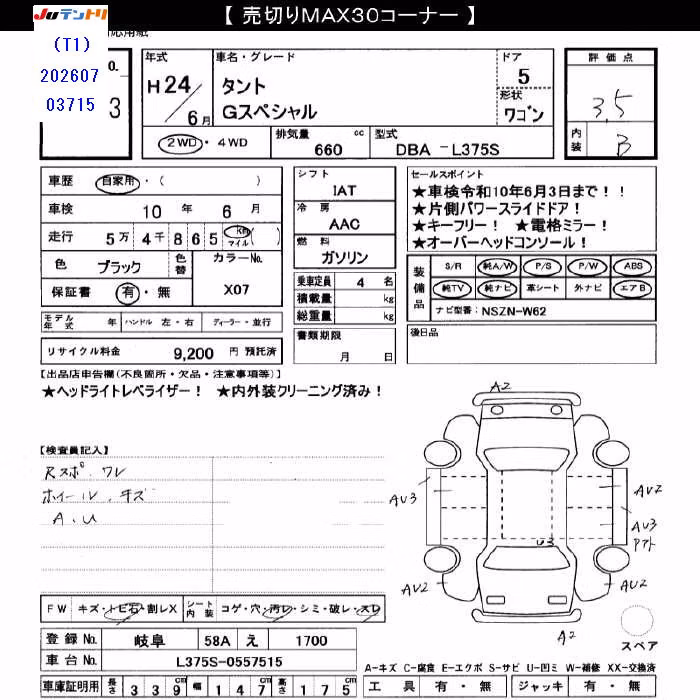 【 売切りMAX30コーナー 】
JUテントリ
(T1)
202607
03715
応用紙
o.
3
年式
H 24/6月
車名・グレード
タント
Gスペシャル
ドア
5
形状
ワゴン
2WD・4WD
排気量
660 cc
型式
DBA -L375S
評価点
3.5
内装
B
車歴 自家用・( )
車検 10 年 6 月
走行 5万 4千 8 6 5 Km マイル ( )
色 ブラック 色替 カラーNo.
保証書 有・無 X07
モデル年式 年 ハンドル 左・右 ディーラー・並行
リサイクル料金 9,200 円 預託済
シフト
IAT
冷房
AAC
燃料
ガソリン
乗車定員 4 名
積載量 kg
総重量 kg
書類期限
月 日
セールスポイント
★車検令和10年6月3日まで！！
★片側パワースライドドア！
★キーフリー！ ★電格ミラー！
★オーバーヘッドコンソール！
装備品
S/R 純A/W P/S P/W ABS
純TV 純ナビ 革シート 外ナビ エアB
ナビ型番: NSZN-W62
後日品
【出品店申告欄(不良箇所・欠品・注意事項等)】
★ヘッドライトレベライザー！ ★内外装クリーニング済み！
【検査員記入】
Rスポ ワレ
ホイール、キズ
A、U
A2
AU3
AU2
AU3
アト
U3
AU2
AU2
A2
スペア
FW キズ・トビ石・割レX シート内装 コゲ・穴・汚レ・シミ・破レ・スレ
登録 No. 岐阜 58A え 1700
車台 No. L375S-0557515
車庫証明用 長さ 3 3 9 cm 幅 1 4 7 cm 高さ 1 7 5 cm
A-キズ C-腐食 E-エクボ S-サビ U-凹ミ W-補修 XX-交換済
工具 有・無 ジャッキ 有・無